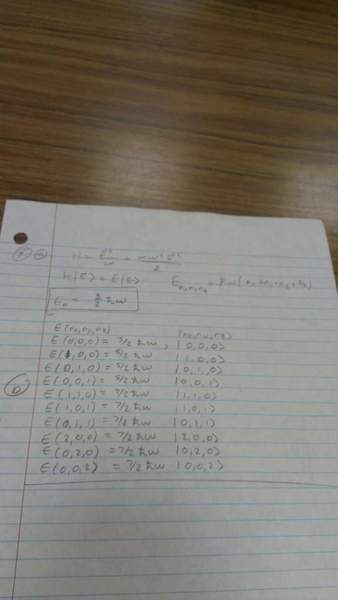 H = P²/2m + mω²r²/2
H|E> = E|E> E n₁,n₂,n₃ = ħω(n₁+n₂+n₃+3/2)
E₀ = 3/2 ħω
E(n₁,n₂,n₃) |n₁,n₂,n₃>
E(0,0,0) = 3/2 ħω, |0,0,0>
E(1,0,0) = 5/2 ħω |1,0,0>
E(0,1,0) = 5/2 ħω |0,1,0>
(b) E(0,0,1) = 5/2 ħω |0,0,1>
E(1,1,0) = 7/2 ħω |1,1,0>
E(1,0,1) = 7/2 ħω |1,0,1>
E(0,1,1) = 7/2 ħω |0,1,1>
E(2,0,0) = 7/2 ħω |2,0,0>
E(0,2,0) = 7/2 ħω |0,2,0>
E(0,0,2) = 7/2 ħω |0,0,2>